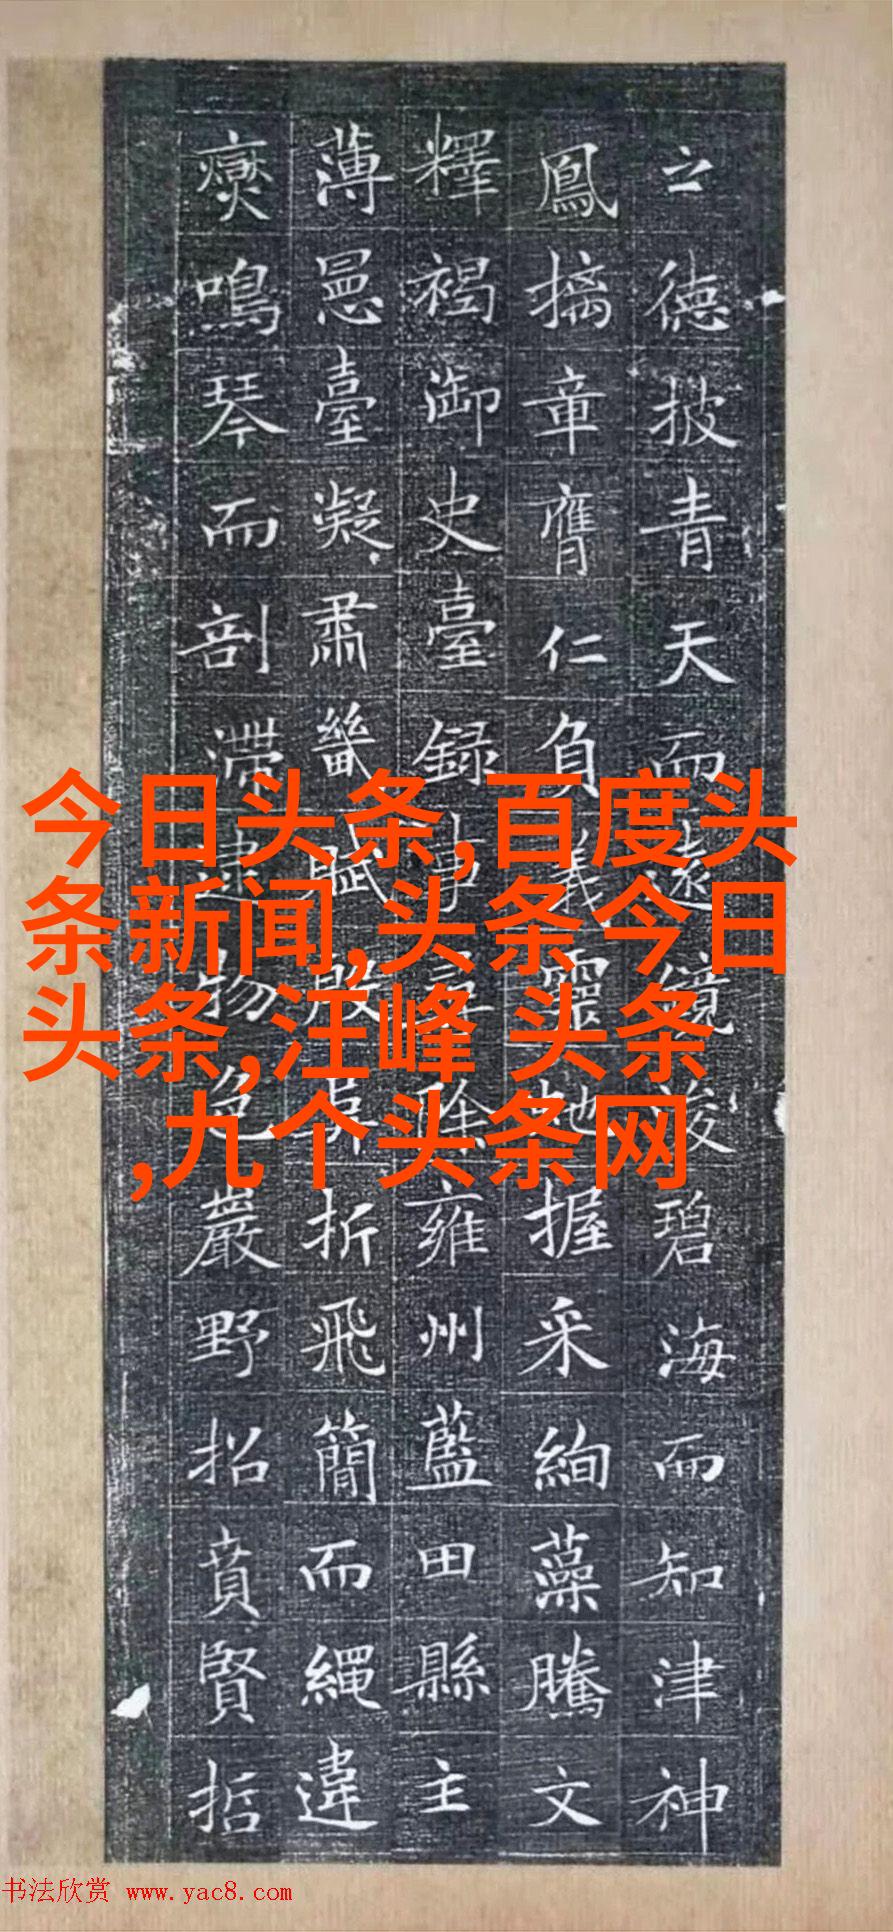 之德披青天而遠鏡浚碧海而知津神
鳳摛章膺仁負義靈蛇握采絢藻騰文
釋褐御史臺録事尋除雍州藍田縣主
薄臺凝肅畿賦殷阜折飛簡而繩違
鳴琴而剖滯逮物色巖野招賁賢哲
今日头条,百度头
条新闻,头条今日
头条,汪峰 头条
,九个头条网
书法欣赏 www.yac8.com